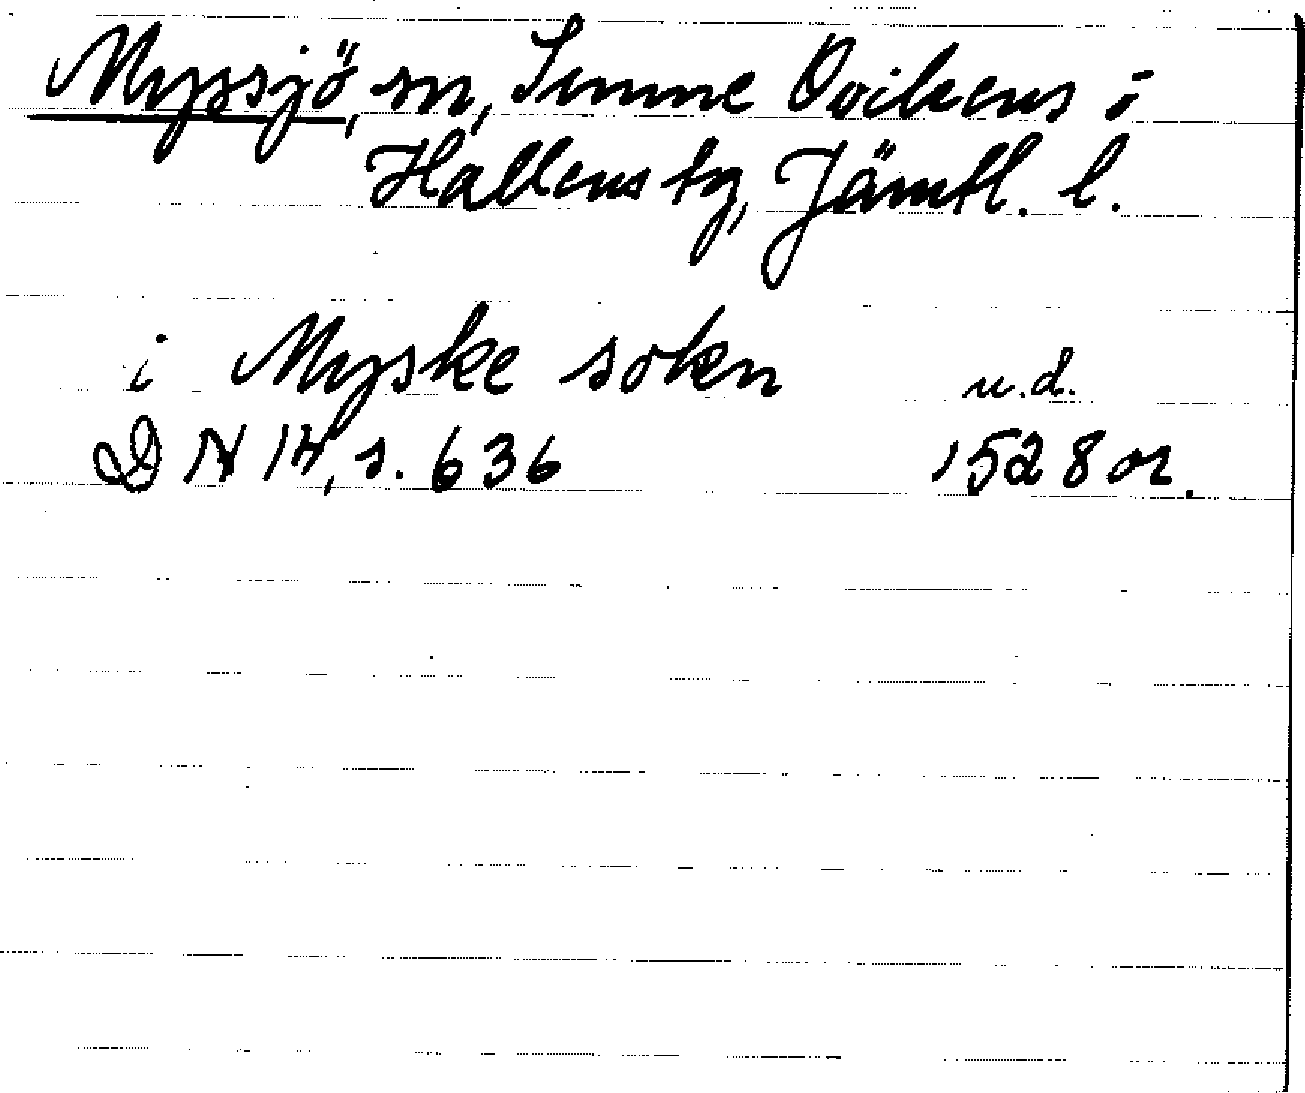 Myssjö, sn, Sunne Ovikens o
Hallens tg, Jämtl. l.
i Myske sokn u.d.
DN 14, s. 636 1528 or.